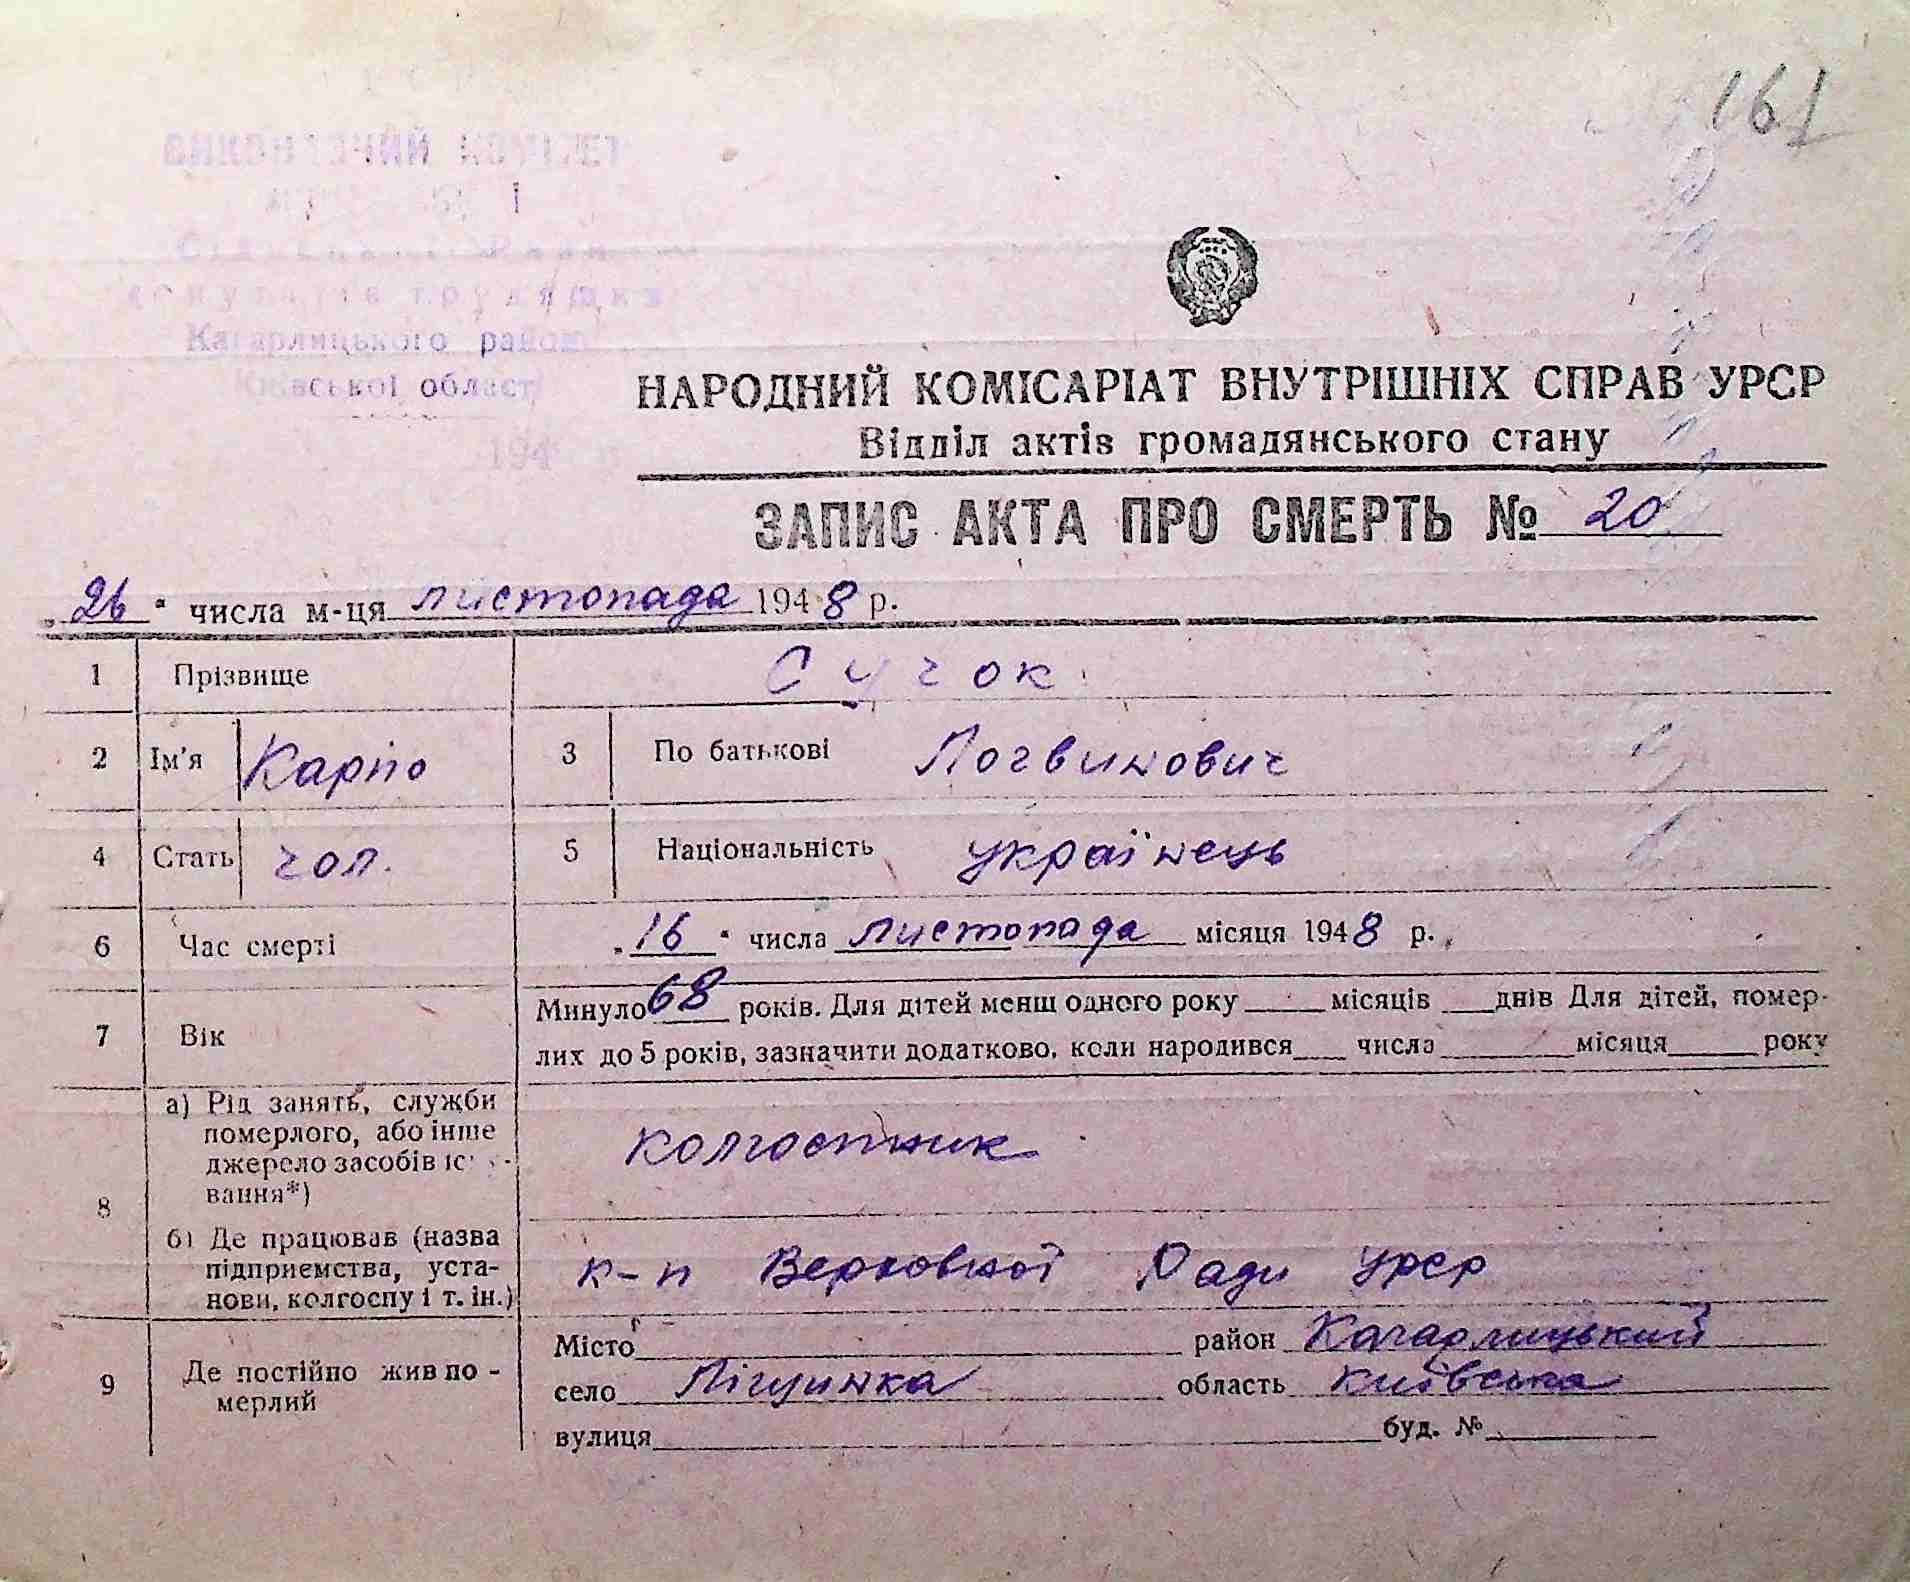 161
ВИКОНАВЧИЙ КОМІТЕТ
депутатів трудящих
Кагарлицького району
Київської області
194
НАРОДНИЙ КОМІСАРІАТ ВНУТРІШНІХ СПРАВ УРСР
Відділ актів громадянського стану
ЗАПИС АКТА ПРО СМЕРТЬ № 20
„26" числа м-ця листопада 1948 р.
1 Прізвище Сучок
2 Ім'я Карпо 3 По батькові Логвинович
4 Стать чол. 5 Національність українець
6 Час смерті „16" числа листопада місяця 1948 р.
7 Вік Минуло 68 років. Для дітей менш одного року ____ місяців ___ днів Для дітей, помер-
лих до 5 років, зазначити додатково, коли народився ___ числа ______ місяця _____ року
8 а) Рід занять, служби
померлого, або інше
джерело засобів існу-
вання*)
колгоспник
б) Де працював (назва
підприємства, уста-
нови, колгоспу і т. ін.)
к-п Верховної Ради УРСР
9 Де постійно жив по-
мерлий
Місто ______ район Кагарлицький
село Ліщинка область Київська
вулиця ______ буд. № ____